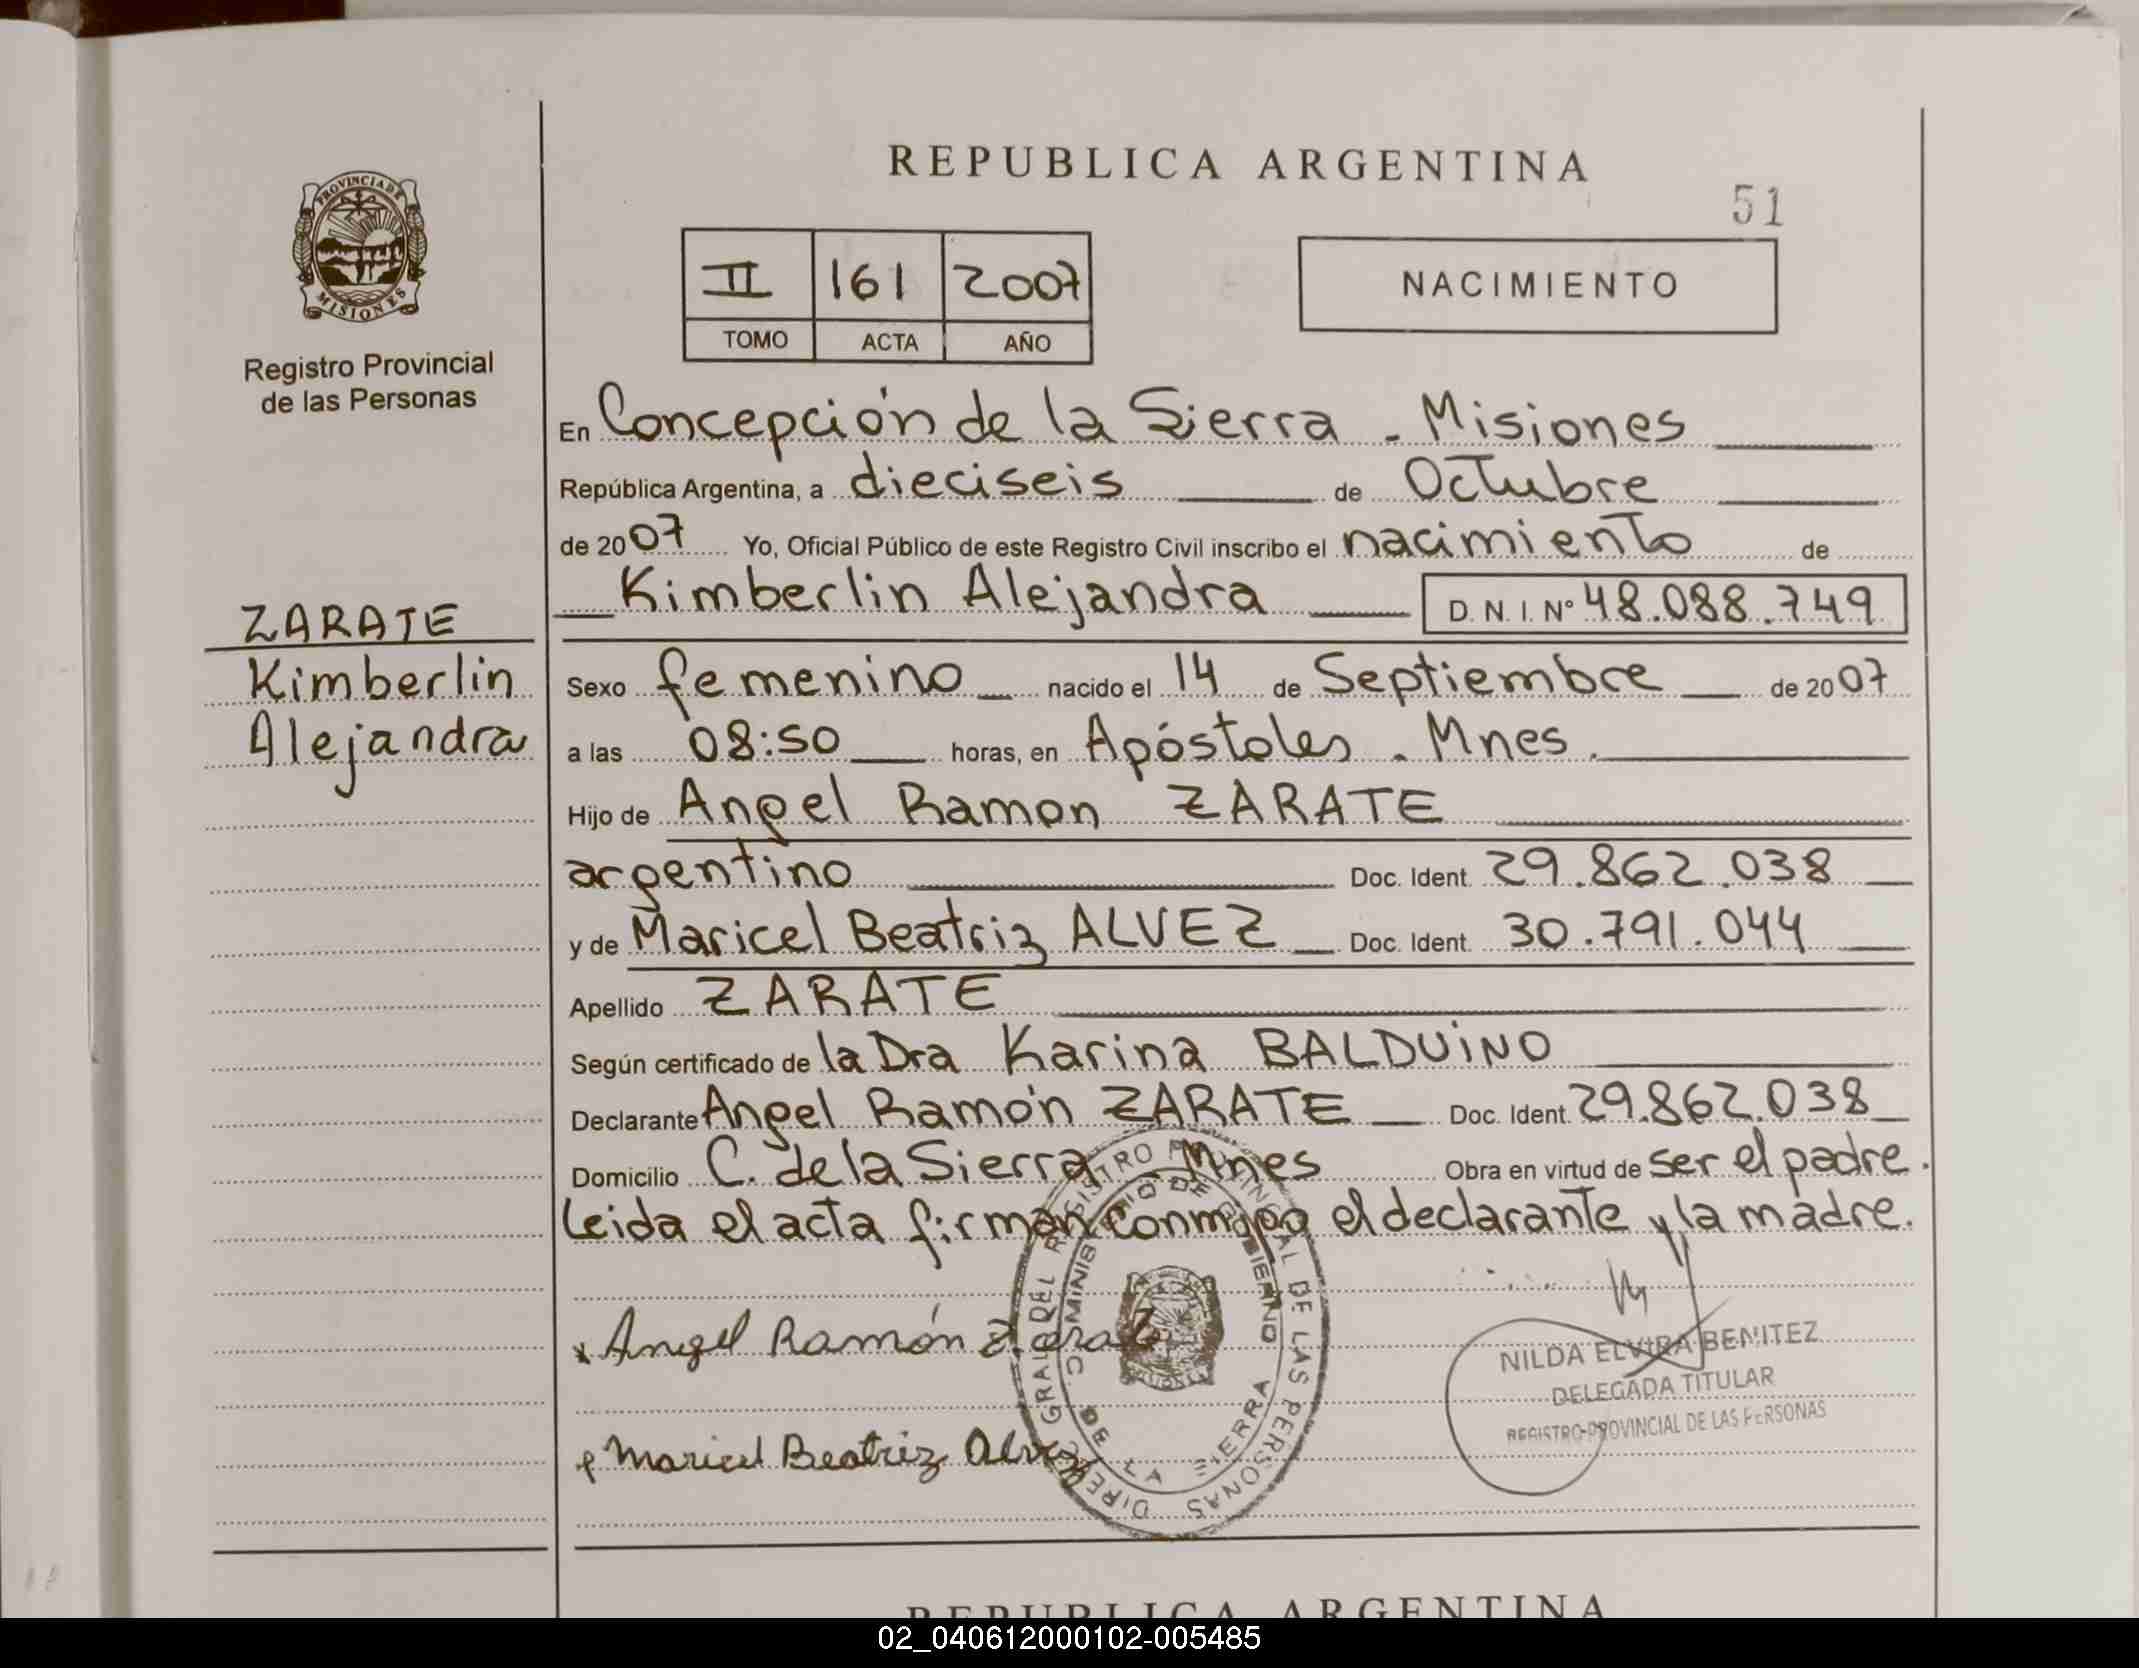 REPUBLICA ARGENTINA
51
PROVINCIA DE
MISIONES
Registro Provincial
de las Personas
II 161 2007
TOMO ACTA AÑO
NACIMIENTO
En Concepción de la Sierra - Misiones
República Argentina, a dieciseis de Octubre
de 2007 Yo, Oficial Público de este Registro Civil inscribo el nacimiento de
Kimberlin Alejandra D.N.I. Nº 48.088.749
ZARATE
Kimberlin
Alejandra
Sexo femenino nacido el 14 de Septiembre de 2007
a las 08:50 horas, en Apóstoles - Mnes.
Hijo de Angel Ramon ZARATE
argentino Doc. Ident. 29.862.038
y de Maricel Beatriz ALVEZ Doc. Ident. 30.791.044
Apellido ZARATE
Según certificado de la Dra Karina BALDUiNO
Declarante Angel Ramón ZARATE Doc. Ident. 29.862.038
Domicilio C. de la Sierra - Mnes Obra en virtud de ser el padre.
Leida el acta firman conmigo el declarante y la madre.
Angel Ramón Zarate
Maricel Beatriz Alvez
DIREC. GRAL DEL REGISTRO PROVINCIAL DE LAS PERSONAS
MINISTERIO DE GOBIERNO
C. DE LA SIERRA
NILDA ELVIRA BENITEZ
DELEGADA TITULAR
REGISTRO PROVINCIAL DE LAS PERSONAS
REPUBLICA ARGENTINA
02_040612000102-005485